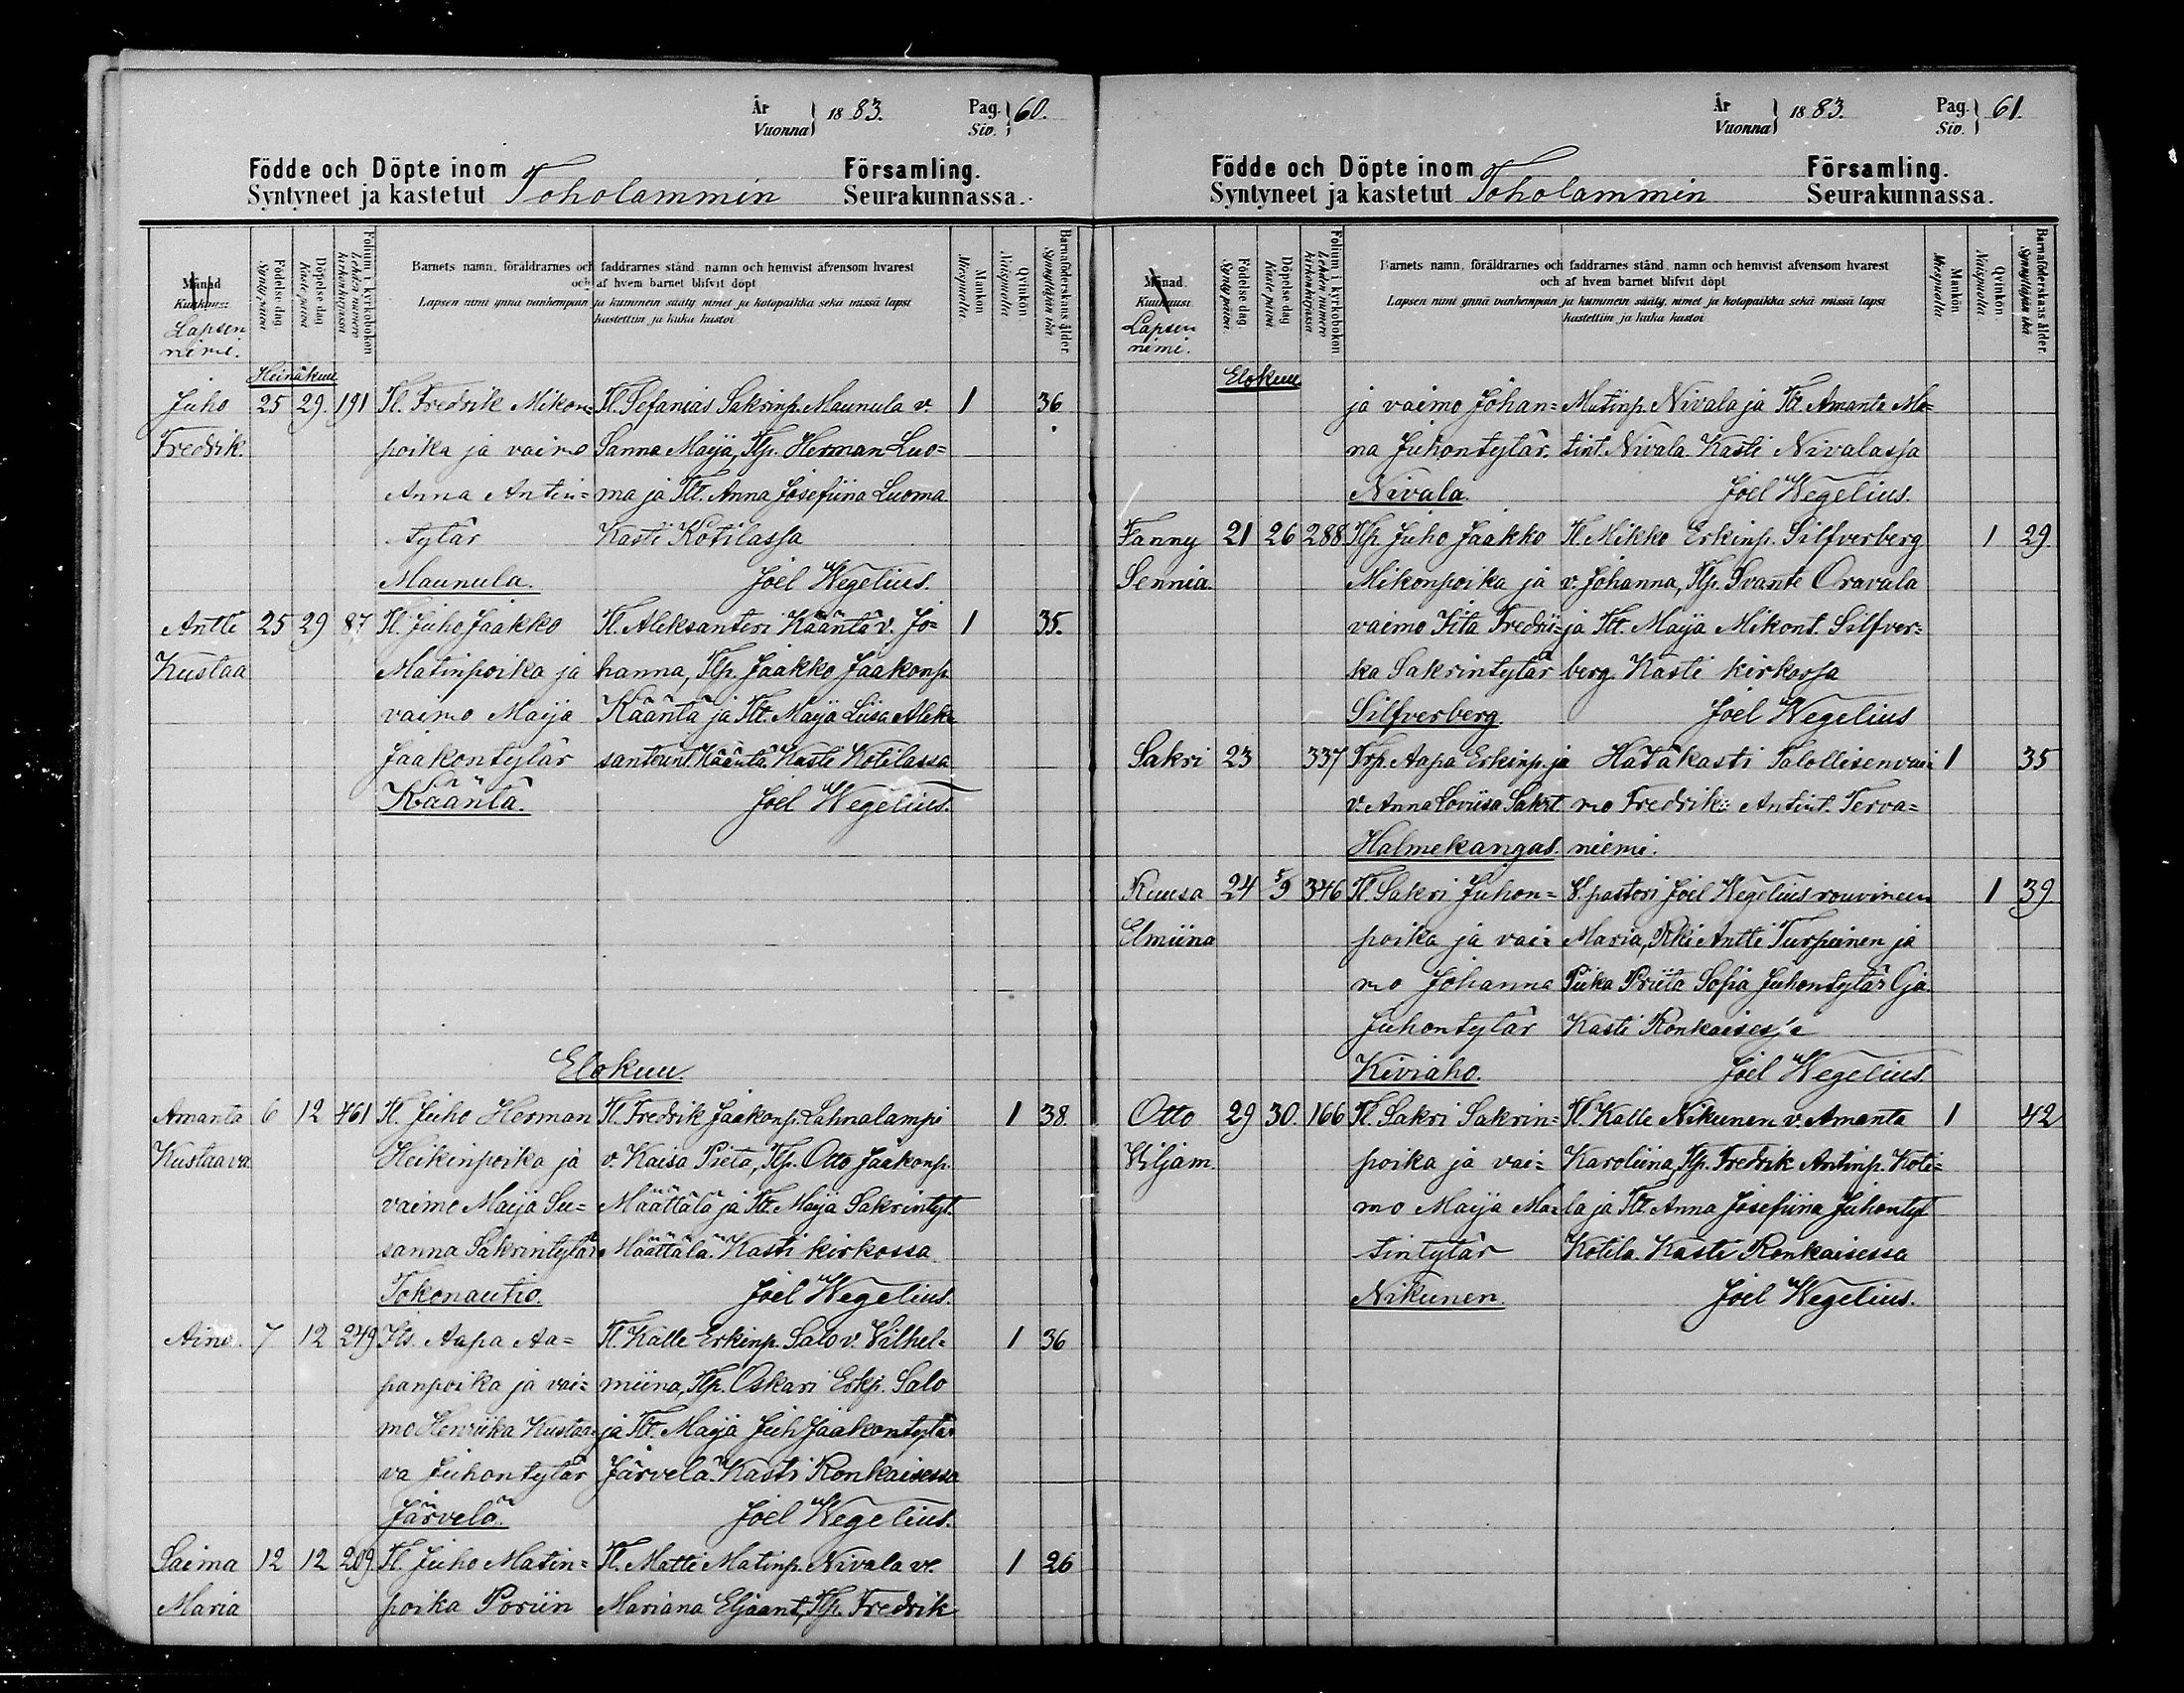 År
Vuonna } 1883.
Pag.
Siv. } 60.
Födde och Döpte inom
Syntyneet ja kastetut Toholammin
Församling.
Seurakunnassa.
Månad
Kuukausi
Lapsen nimi.
Födelse dag
Synty päivä
Döpelse dag
Kaste päivä
Folium i kyrkoboken
Lehden numero kirkonkirjassa
Barnets namn, föräldrarnes och faddrarnes stånd, namn och hemvist äfvensom hvarest
och af hvem barnet blifvit döpt
Lapsen nimi ynnä vanhempain ja kummein sääty, nimet ja kotopaikka sekä missä lapsi
kastettiin ja kuka kastoi
Mankön
Miespuolia
Qvinkön
Naispuolia
Barnaföderskans ålder
Synnyttäjän ikä
Heinäkuu
Juho 25 29. 191 Tl. Fredrik Mikon= Tl. Sefanias Sakrinp. Maunula v. 1 36
Fredrik. poika ja vaimo Sanna Maija, Tlp. Herman Luo=
Anna Antin= ma ja Tlt. Anna Josefiina Luoma
tytär Kasti Kotilassa
Maunula. Joel Wegelius.
Antti 25 29 87 Tl. Juho Jaakko Tl. Aleksanteri Kääntä v. Jo= 1 35.
Kustaa Matinpoika ja hanna, Tlp. Jaakko Jaakonp.
vaimo Maija Kääntä ja Tlt. Maija Liisa Alek=
Jaakontytär santerint. Kääntä. Kasti Kotilassa
Kääntä. Joel Wegelius.
Elokuu.
Amanta 6 12 461 Tl. Juho Herman Tl. Fredrik Jaakonp. Lahnalampi 1 38.
Kustaava Heikinpoika ja v. Kaisa Pieta, Tlp. Otto Jaakonp.
vaimo Maija Su= Määttälä ja Tlt. Maija Sakrintyt.
sanna Sakrintytär Määttälä. Kasti kirkossa
Tokonautio. Joel Wegelius.
Aino. 7 12 249 Its. Aapa Aa= Tl. Kalle Erkinp. Salo v. Vilhel= 1 36
panpoika ja vai= miina, Tlp. Oskari Erkp. Salo
mo Henriika Kustaa= ja Tlt. Maija Juh Jaakontytär
va Juhontytär Järvelä. Kasti Ronkaisessa
Järvelä. Joel Wegelius.
Saima 12 12 209. Tl. Juho Matin= Tl. Matti Matinp. Nivala v. 1 26
Maria poika Poriin Mariana Eljaant, Tlp. Fredrik
År
Vuonna } 1883.
Pag.
Siv. } 61.
Födde och Döpte inom
Syntyneet ja kastetut Toholammin
Församling.
Seurakunnassa.
Månad.
Kuukausi
Lapsen nimi.
Födelse dag
Synty päivä
Döpelse dag
Kaste päivä
Folium i kyrkoboken
Lehden numero kirkonkirjassa
Barnets namn, föräldrarnes och faddrarnes stånd, namn och hemvist afvensom hvarest
och af hvem barnet blifvit döpt
Lapsen nimi ynnä vanhempain ja kummein sääty, nimet ja kotopaikka sekä missä lapsi
kastettiin ja kuka kastoi
Mankön
Miespuolia
Qvinkön
Naispuolia.
Barnaföderskans ålder.
Synnyttäjän ikä
Elokuu
ja vaimo Johan= Matinp. Nivala ja Tlt. Amanta Ma=
na Juhontytär. tint. Nivala. Kasti Nivalassa
Nivala. Joel Wegelius.
Fanny 21 26 288 Tlp. Juho Jaakko Tl. Mikko Erkinp. Silfverberg 1 29
Sennia. Mikonpoika ja v. Johanna, Tlp. Svante Oravala
vaimo Iita Fredrii= ja Tlt. Maija Mikont. Silfver=
ka Sakrintytär berg. Kasti kirkossa
Silfverberg. Joel Wegelius
Sakri 23 337 Trp. Aapa Erkinp. ja Hätäkasti Talollisenvai= 1 35
v. Anna Loviisa Sakrt. mo Fredrika Antint. Terva=
Halmekangas. niemi.
Ruusa 24 5/9 346 Tl. Sakri Juhon= V. pastori Joel Wegelius rouvineen 1 39
Elmiina poika ja vai= Maria, Rki Antti Turpeinen ja
mo Johanna Piika Priita Sofia Juhontytär Oja.
Juhontytär Kasti Ronkaisessa
Kiviaho. Joel Wegelius.
Otto 29 30. 166 Tl. Sakri Sakrin= Tl. Kalle Nikunen v. Amanta 1 42
Viljam. poika ja vai= Karoliina, Tlp. Fredrik Antinp. Koti=
mo Maija Ma= la ja Tlt. Anna Josefiina Juhontyt
tintytär Kotila. Kasti Ronkaisessa
Nikunen. Joel Wegelius.